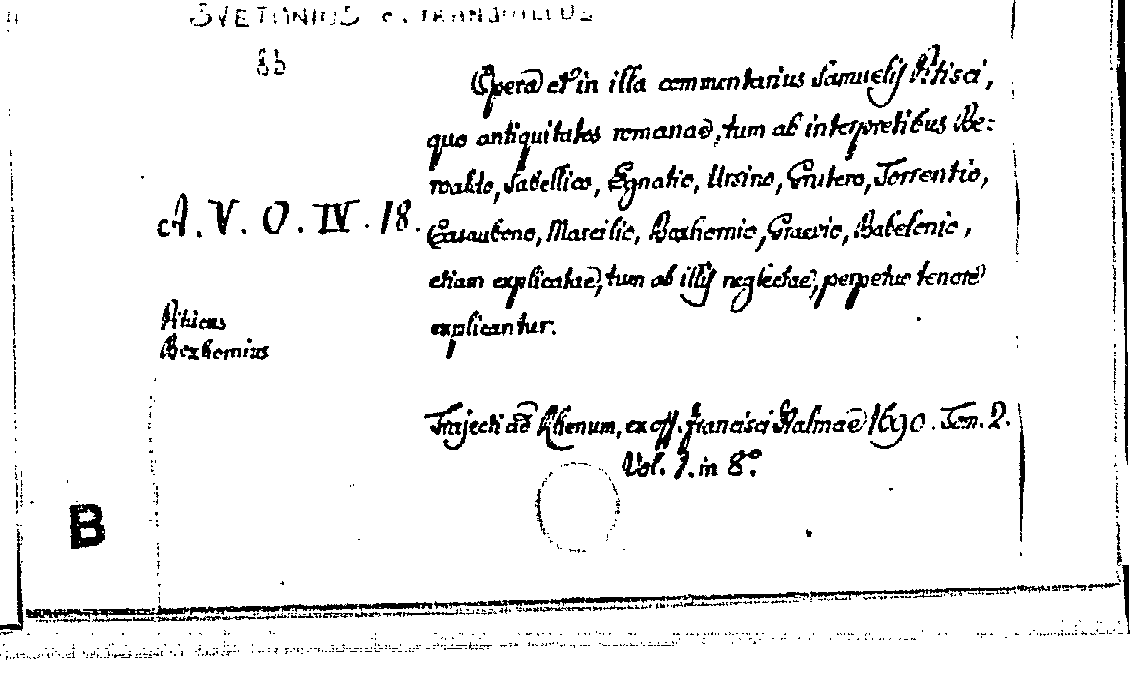 SVETONIUS C. TRANQUILLUS
8b
Opera et in illa commentarius Samuelis Pitisci,
quo antiquitates romanae, tum ab interpretibus Be=
roaldo, Sabellico, Egnatio, Ursino, Grutero, Torrentio,
A. V. O. IV. 18.
Casaubono, Marcilio, Boxhornio, Graevio, Babelonio,
etiam explicatae, tum ab illis neglectae, perpetuo tenore
explicantur.
Pitiscus
Boxhornius
Trajecti ad Rhenum, ex off. Francisci Halmae 1690. Tom. 2.
Vol. 1. in 8°.
B